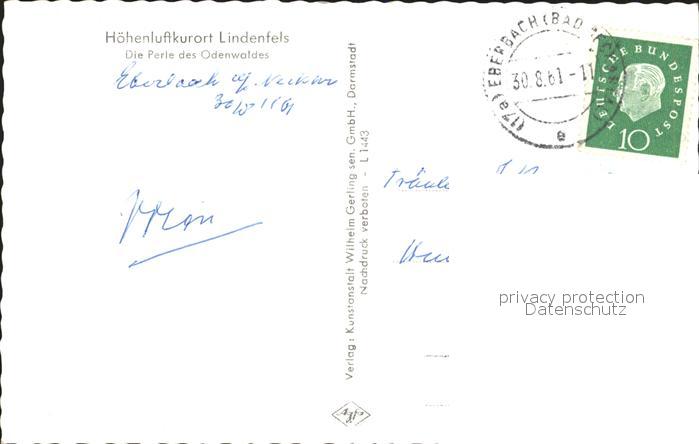 Höhenluftkurort Lindenfels
Die Perle des Odenwaldes
Eberbach a/. Neckar
Verlag: Kunstanstalt Wilhelm Gerling sen. GmbH., Darmstadt
Nachdruck verboten - L 1443
Agfa
(17a) EBERBACH (BAD
30.8.61-11
e
DEUTSCHE BUNDESPOST
10
privacy protection
Datenschutz